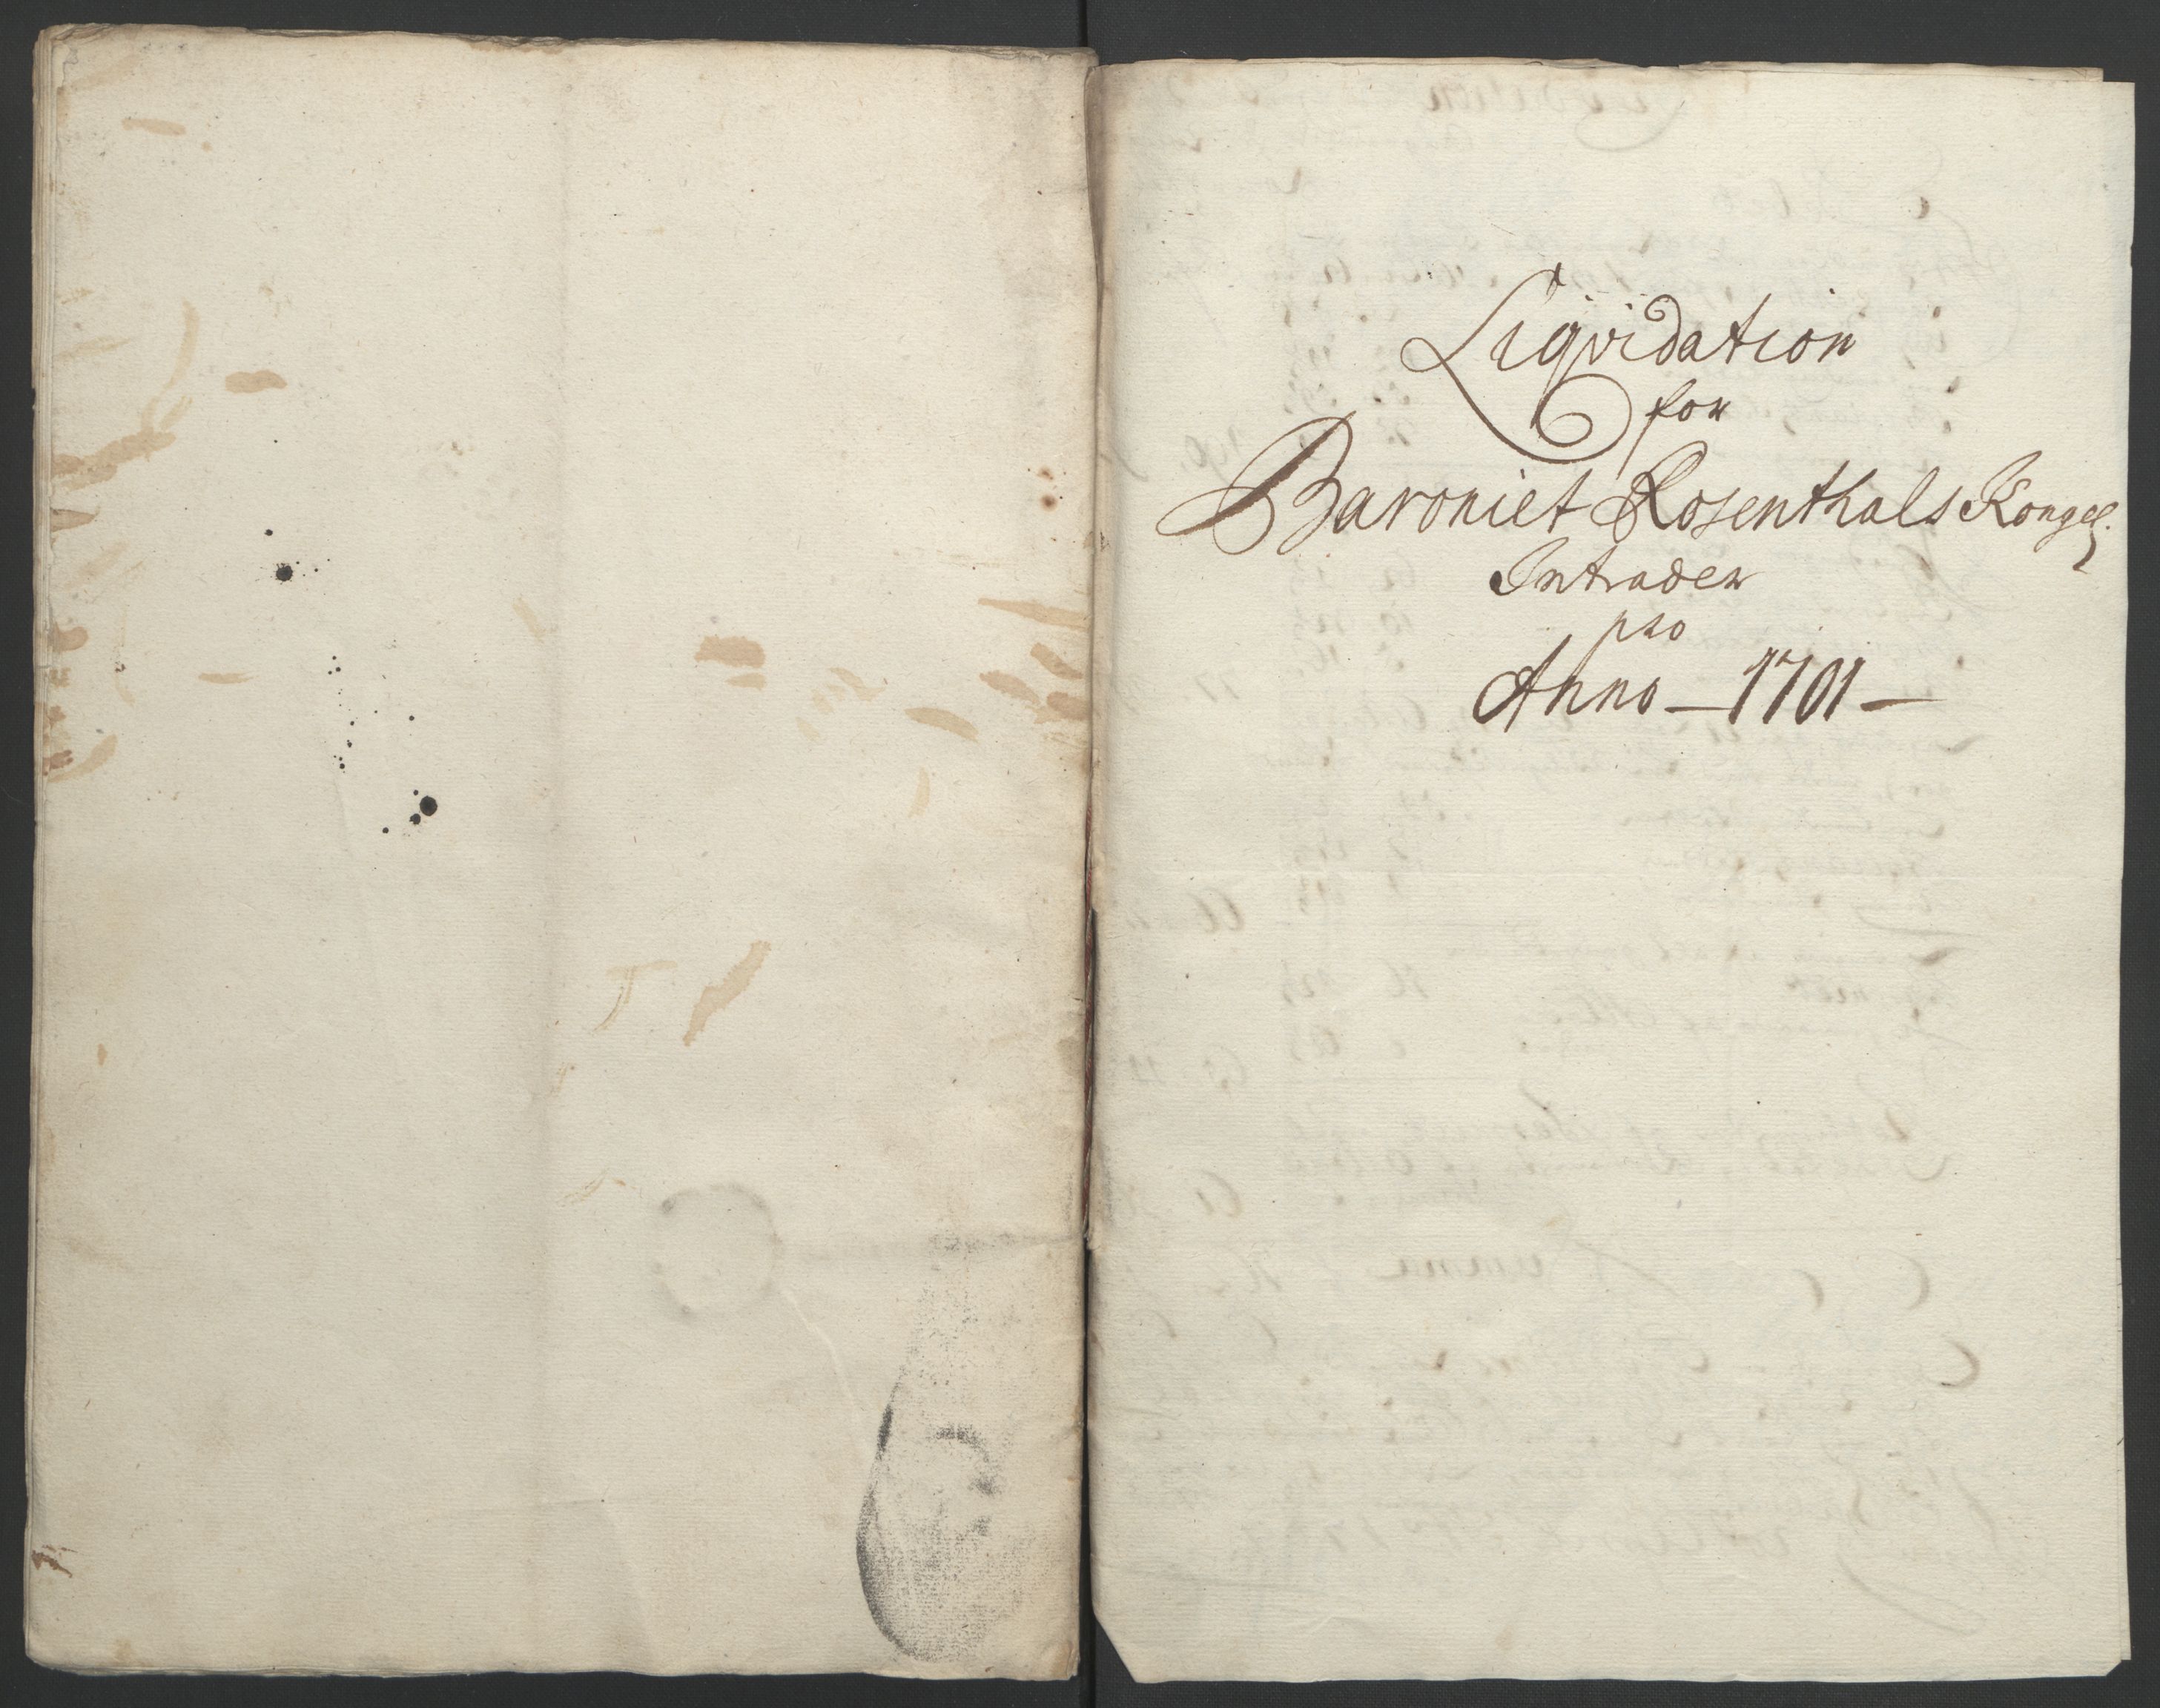 Liqvidation
for
Baroniet Rosenthals Kongel.
Intrader
pro
Anno - 1701 -